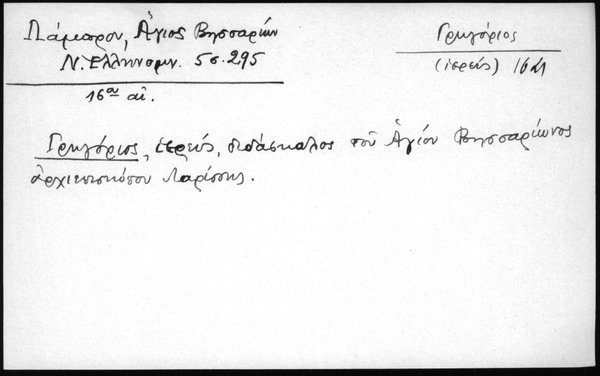 Πάμισρον, Ἅγιος Βησσαρίων
Ν. Ἑλληνομν. 5 σ. 295
16ᵒⁿ αἰ.
Γρηγόριος
(ἱερεύς) 1621
Γρηγόριος, ἱερεύς, διδάσκαλος τοῦ Ἁγίου Βησσαρίωνος
ἀρχιεπισκόπου Λαρίσσης.